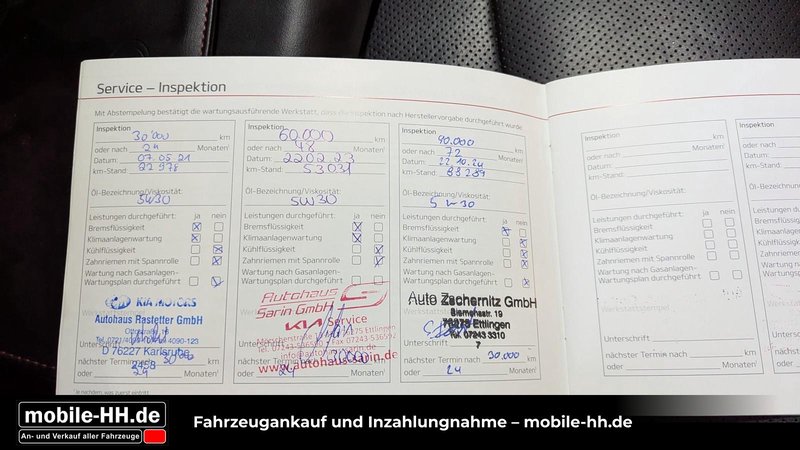 Service – Inspektion
Mit Abstempelung bestätigt die wartungsausführende Werkstatt, dass die Inspektion nach Herstellervorgabe durchgeführt wurde
Inspektion
30'000 km
oder nach 24 Monaten¹
Datum: 07.05.21
km-Stand: 22978
Öl-Bezeichnung/Viskosität:
5W30
Leistungen durchgeführt: ja nein
Bremsflüssigkeit
Klimaanlagenwartung
Kühlflüssigkeit
Zahnriemen mit Spannrolle
Wartung nach Gasanlagen-
Wartungsplan durchgeführt
KIA MOTORS
Autohaus Rastetter GmbH
D 76227 Karlsruhe
nächster Termin nach 30'000
oder 24 Monaten¹
Inspektion
60.000 km
oder nach 48 Monaten¹
Datum: 22 02 23
km-Stand: 53031
Öl-Bezeichnung/Viskosität:
5W30
Leistungen durchgeführt: ja nein
Bremsflüssigkeit
Klimaanlagenwartung
Kühlflüssigkeit
Zahnriemen mit Spannrolle
Wartung nach Gasanlagen-
Wartungsplan durchgeführt
Autohaus
Sarin GmbH
KIA Service
www.autohaus-sarin.de
nächster Termin nach
oder 24 Monaten¹
Inspektion
90.000 km
oder nach 72 Monaten¹
Datum: 22.10.24
km-Stand: 88289
Öl-Bezeichnung/Viskosität:
5W-30
Leistungen durchgeführt: ja nein
Bremsflüssigkeit
Klimaanlagenwartung
Kühlflüssigkeit
Zahnriemen mit Spannrolle
Wartung nach Gasanlagen-
Wartungsplan durchgeführt
Auto Zschernitz GmbH
Siemensstr. 19
76275 Ettlingen
Tel. 07243 3310
7
Unterschrift
nächster Termin nach 30.000 km
oder 24 Monaten¹
Inspektion
km
oder nach Monaten¹
Datum:
km-Stand:
Öl-Bezeichnung/Viskosität:
Leistungen durchgeführt: ja nein
Bremsflüssigkeit
Klimaanlagenwartung
Kühlflüssigkeit
Zahnriemen mit Spannrolle
Wartung nach Gasanlagen-
Wartungsplan durchgeführt
Werkstattstempel
Unterschrift
nächster Termin nach km
oder Monaten¹
Inspektion
oder nach
Datum:
km-Stand:
Öl-Bezeichnung
Leistungen
Bremsflüssigkeit
Klimaanlagen
Kühlflüssigkeit
Zahnriemen
Wartung nach
Wartungsplan
Unterschrift
nächster
oder
¹ Je nachdem, was zuerst eintritt.
mobile-HH.de
An- und Verkauf aller Fahrzeuge
Fahrzeugankauf und Inzahlungnahme – mobile-hh.de